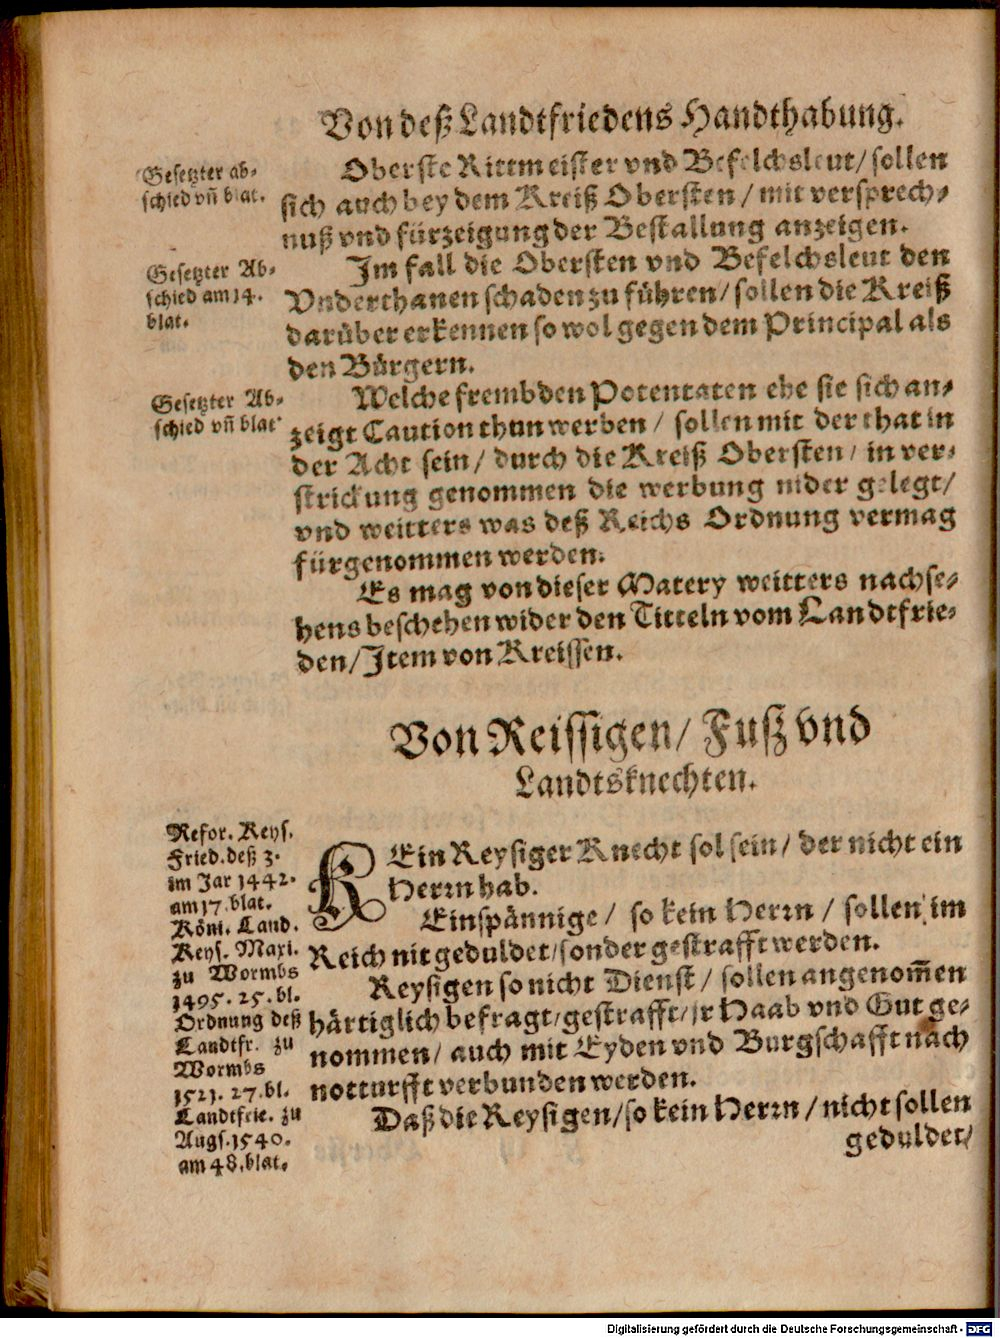 Von deß Landtfriedens Handthabung.
Gesetzter ab-
schied vñ blat.
Oberste Rittmeister vnd Befelchsleut/ sollen
sich auch bey dem Kreiß Obersten / mit versprech-
nuß vnd fürzeigung der Bestallung anzeigen.
Gesetzter Ab-
schied am 14.
blat.
Im fall die Obersten vnd Befelchsleut den
Vnderthanen schaden zu führen/ sollen die Kreiß
darüber erkennen so wol gegen dem Principal als
den Bürgern.
Gesetzter Ab-
schied vñ blat
Welche frembden Potentaten ehe sie sich an-
zeigt Caution thun werben / sollen mit der that in
der Acht sein/ durch die Kreiß Obersten/ in ver-
strickung genommen die werbung nider gelegt/
vnd weitters was deß Reichs Ordnung vermag
fürgenommen werden.
Es mag von dieser Matery weitters nachse-
hens beschehen wider den Titteln vom Landtfrie-
den/ Item von Kreissen.
Von Reissigen/ Fuß vnd
Landtsknechten.
Refor. Keys.
Fried. deß 3.
im Jar 1442.
am 17. blat.
Köni. Land.
Keys. Maxi.
zu Wormbs
1495. 25. bl.
Ordnung deß
Landtfr. zu
Wormbs
1521. 27. bl.
Landtfrie. zu
Augs. 1540.
am 48. blat.
KEin Reysiger Knecht sol sein/ der nicht ein
Herrn hab.
Einspännige / so kein Herrn / sollen im
Reich nit geduldet/ sonder gestrafft werden.
Reysigen so nicht Dienst / sollen angenom̃en
härtiglich befragt/ gestrafft/ jr Haab vnd Gut ge-
nommen/ auch mit Eyden vnd Burgschafft nach
notturfft verbunden werden.
Daß die Reysigen/ so kein Herrn / nicht sollen
geduldet/
Digitalisierung gefördert durch die Deutsche Forschungsgemeinschaft - DFG